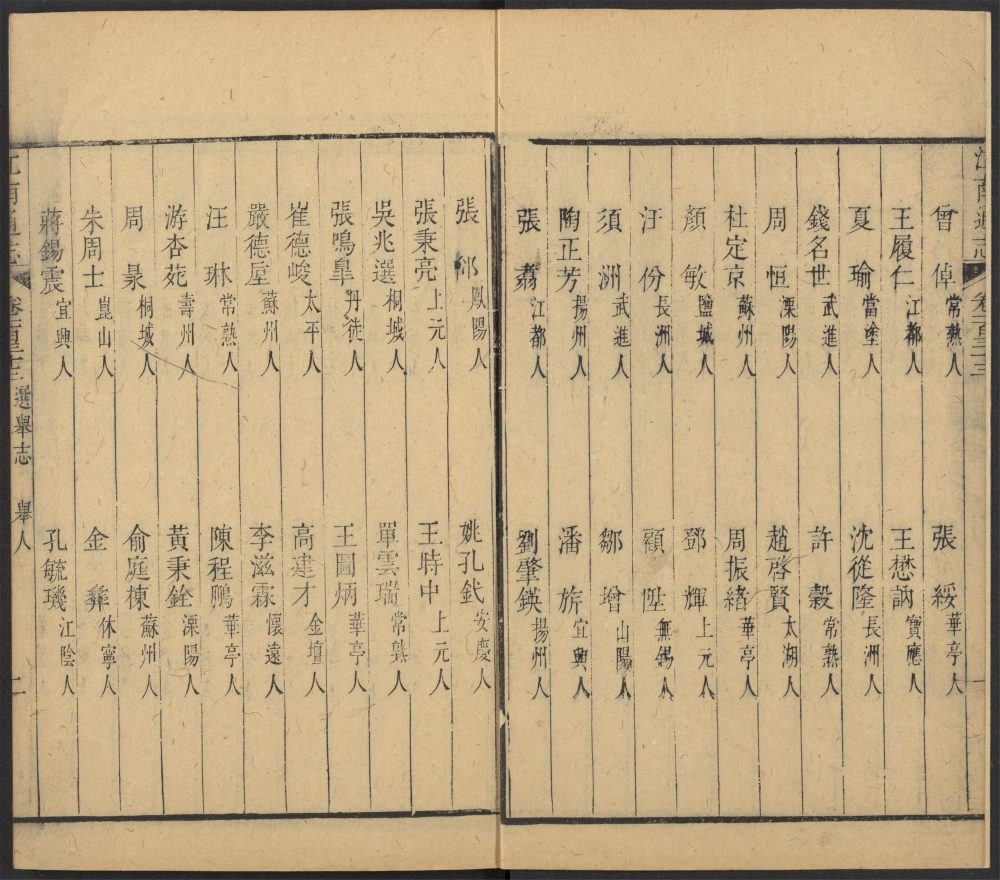 江南通志 卷一百三十三 一
曾倬 常熟人 張綏 華亭人
王履仁 江都人 王懋訥 寶應人
夏瑜 當塗人 沈從隆 長洲人
錢名世 武進人 許穀 常熟人
周恒 溧陽人 趙啓賢 太湖人
杜定京 蘇州人 周振緒 華亭人
顏敏 鹽城人 鄧輝 上元人
汪份 長洲人 顧陞 無錫人
須洲 武進人 鄒增 山陽人
陶正芳 揚州人 潘旂 宜興人
張翥 江都人 劉肇鍈 揚州人
張 鳳陽人 姚孔鈵 安慶人
張秉亮 上元人 王時中 上元人
吳兆選 桐城人 單雲瑞 常熟人
張鳴臯 丹徒人 王圖炳 華亭人
崔德峻 太平人 高建才 金壇人
嚴德屋 蘇州人 李滋霖 懷遠人
汪琳 常熟人 陳程鵬 華亭人
游杏苑 壽州人 黃秉銓 溧陽人
周㬎 桐城人 俞庭棟 蘇州人
朱周士 崑山人 金彝 休寧人
蔣錫震 宜興人 孔毓璣 江陰人
江南通志 卷一百三十三 選舉志 舉人 二